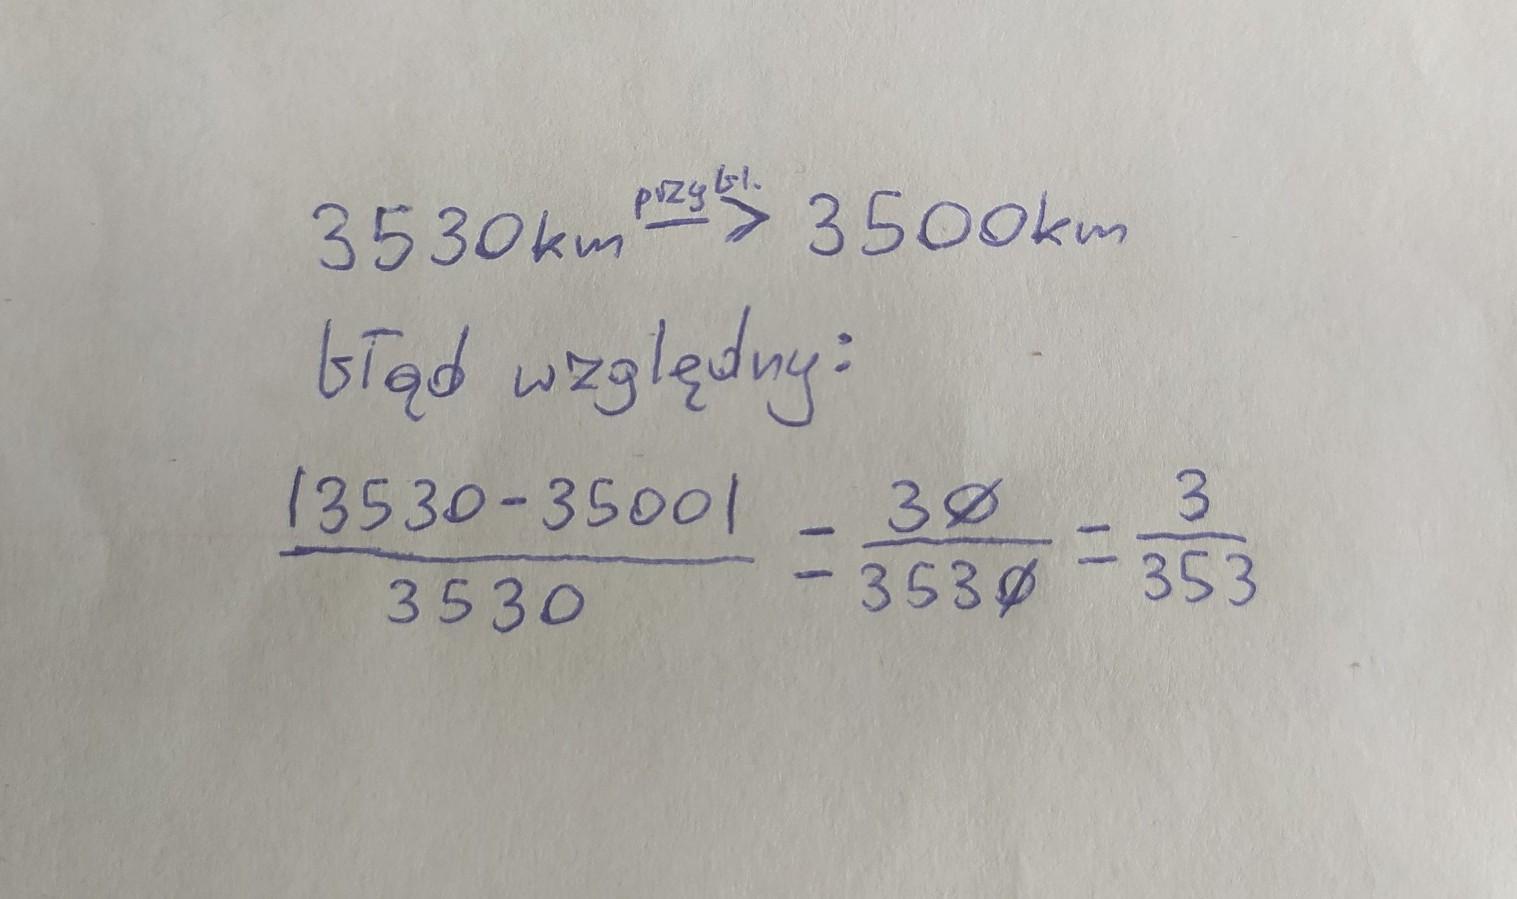 3530km przybl. -> 3500km
błąd względny:
|3530-3500| / 3530 = 30 / 3530 = 3 / 353